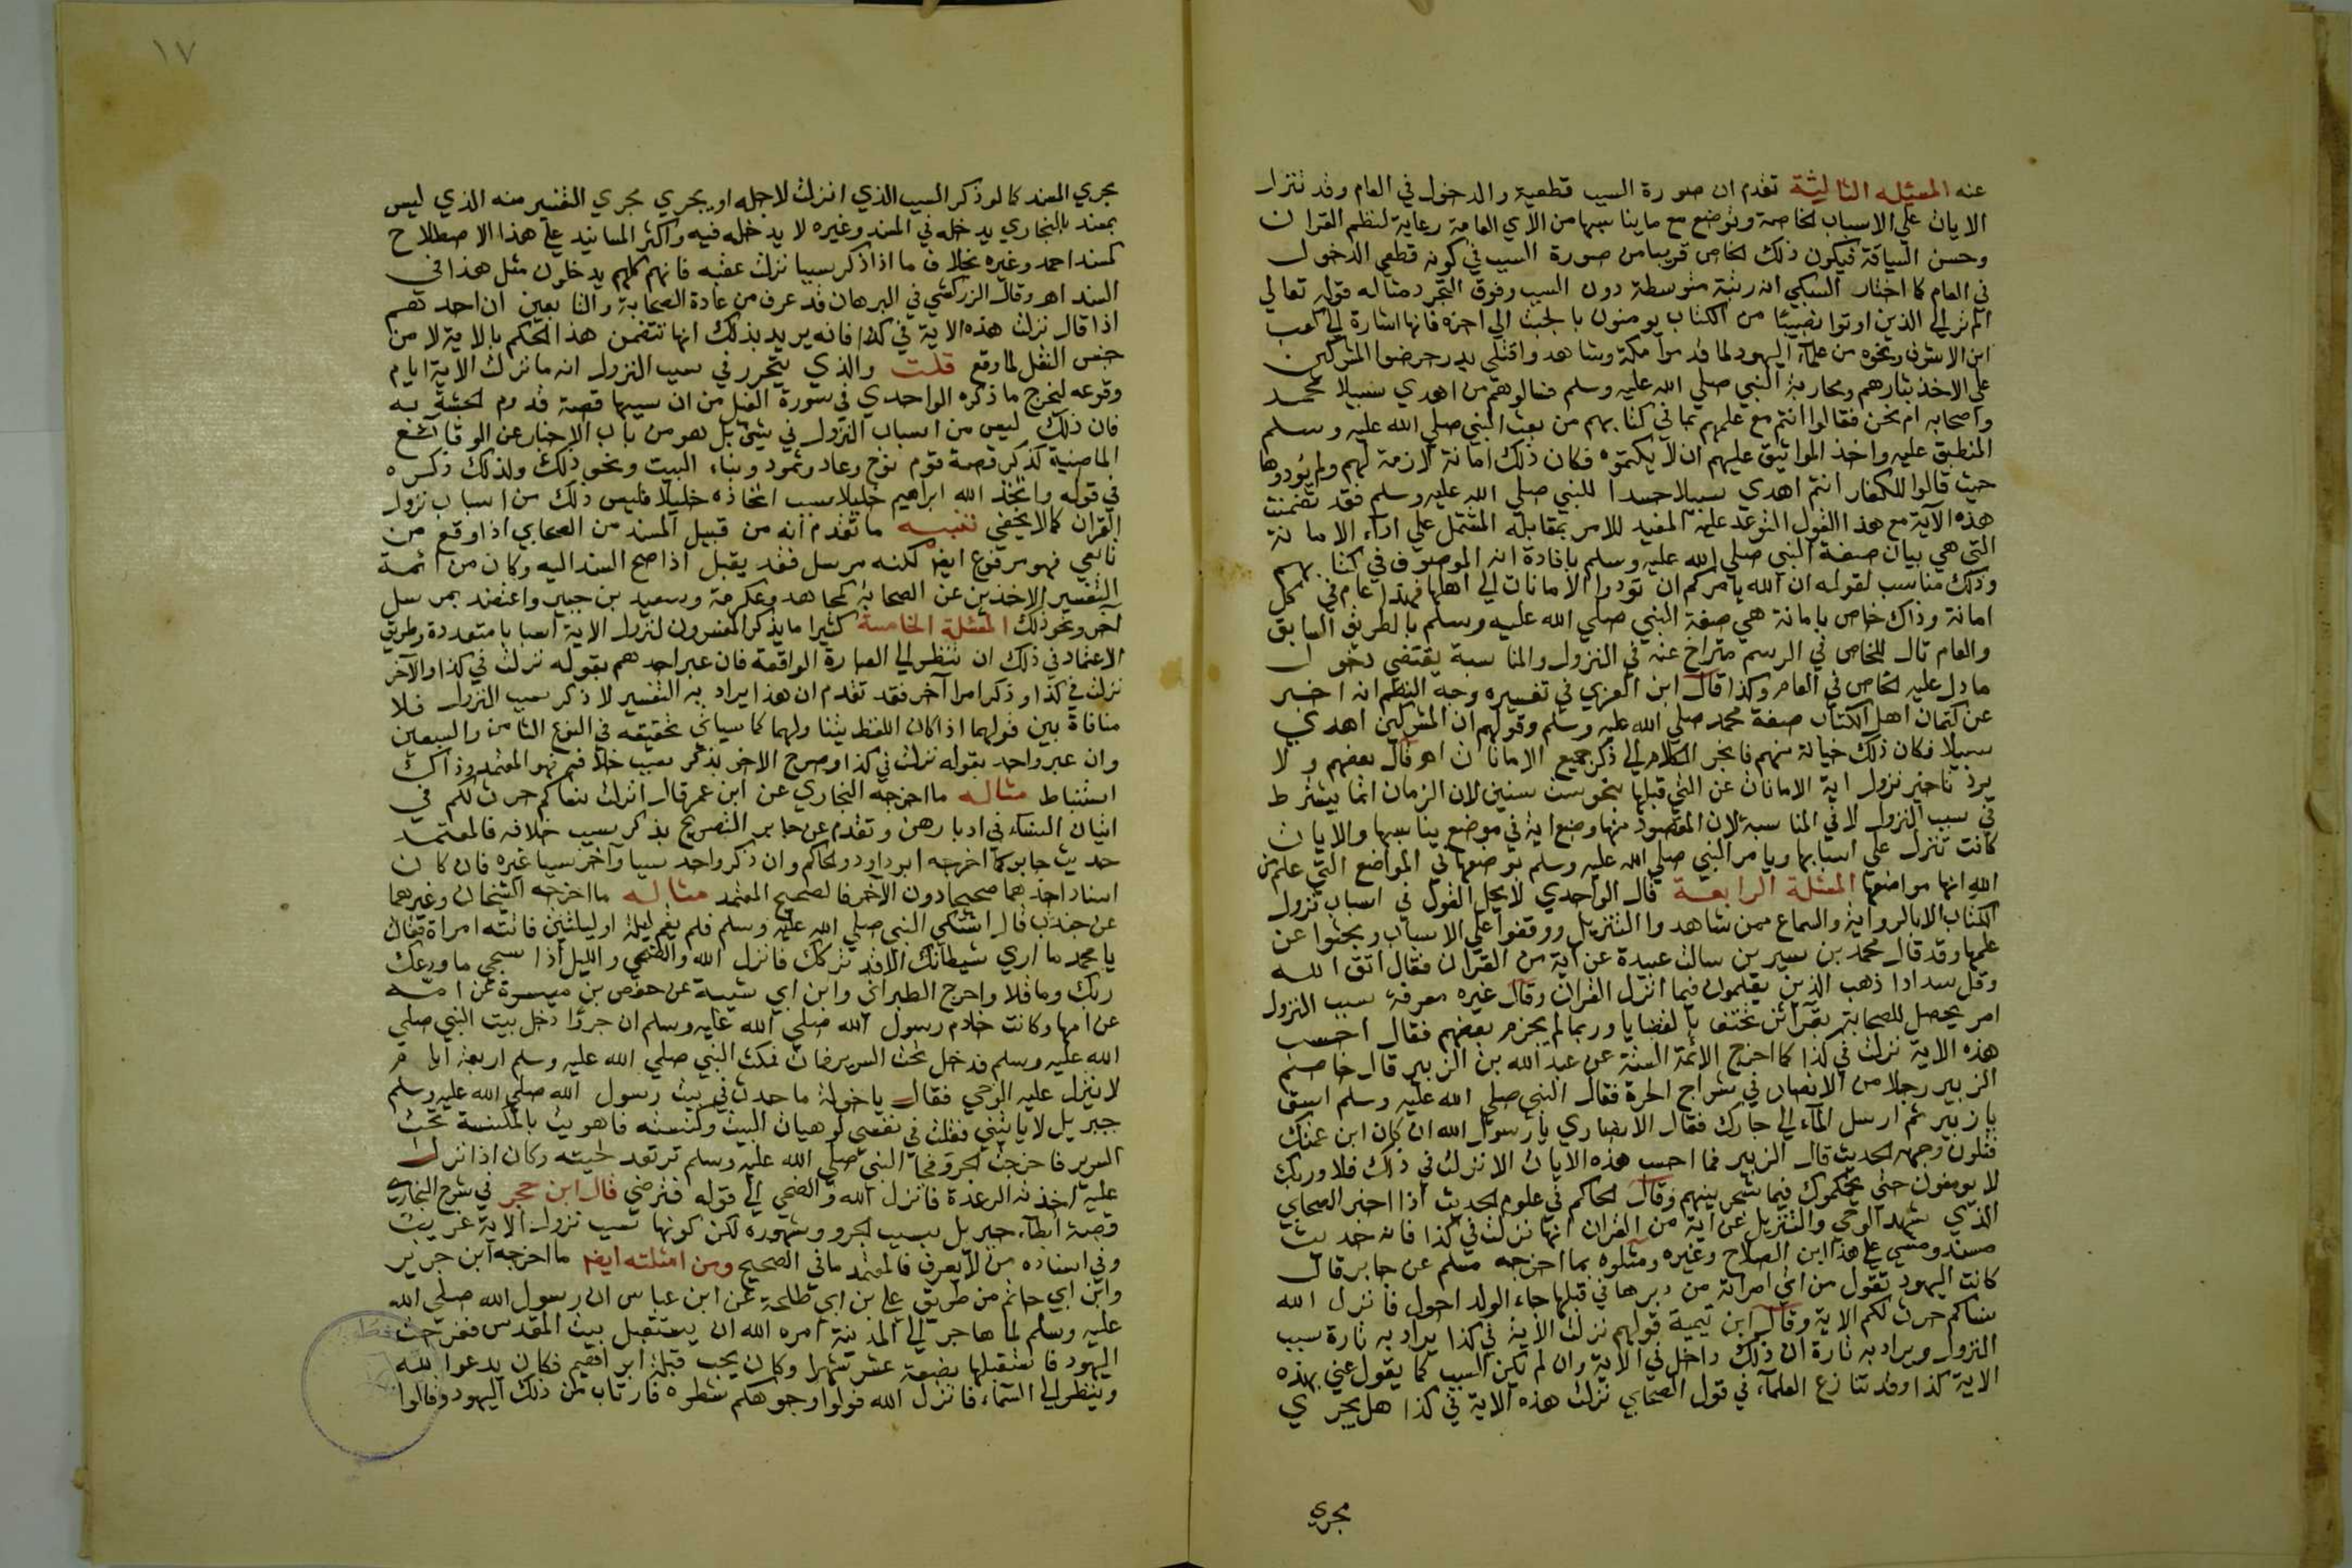 عنه المسئلة الثالثة تقدم ان صورة السبب قطعية والدخول في العام وقد تنزل
الايات علي الاسباب الخاصة وتوضع مع ما يناسبها من الآي العامة رعاية لنظم القران
وحسن السياقة فيكون ذلك الخاص قريبا من صورة السبب في كونه قطعي الدخول
في العام كما اختار السبكي انه رتبة متوسطة دون السبب وفوق التجرد مثاله قوله تعالي
الم تر الي الذين اوتوا نصيبا من الكتاب يومنون بالجبت الي اخره فانها اشارة الي كعب
ابن الاشرف ونحوه من علمآء اليهود لما قدموا مكة وشاهدوا قتلي بدر حرضوا المشركين
علي الاخذ بثارهم ومحاربة النبي صلي الله عليه وسلم فسالوهم من اهدي سبيلا محمد
واصحابه ام نحن فقالوا انتم مع علمهم بما في كتابهم من بعث النبي صلي الله عليه وسلم
المنطبق عليه واخذ المواثيق عليهم ان لا يكتموه فكان ذلك امانة لازمة لهم ولم يؤدوها
حيث قالوا للكفار انتم اهدي سبيلا حسدا للنبي صلي الله عليه وسلم فقد تضمنت
هذه الآية مع هذا القول التوعد عليه المفيد للامر بمقابله المشتمل علي اداء الامانة
التي هي بيان صفة النبي صلي الله عليه وسلم بافادة انه الموصوف في كتابهم
وذلك مناسب لقوله ان الله يامركم ان تودوا الامانات الي اهلها فهذا عام في كل
امانة وذاك خاص بامانة هي صفة النبي صلي الله عليه وسلم بالطريق السابق
والعام تال للخاص في الرسم متراخ عنه في النزول والمناسبة يقتضي دخول
ما دل عليه الخاص في العام وكذا قال ابن العربي في تفسيره وجه النظم انه اخبر
عن كتمان اهل الكتاب صفة محمد صلي الله عليه وسلم وقولهم ان المشركين اهدي
سبيلا فكان ذلك خيانة منهم فانجر الكلام الي ذكر جميع الامانات اهـ قال بعضهم ولا
يرد تاخير نزول اية الامانات عن التي قبلها بنحو ست سنين لان الزمان انما يشترط
في سبب النزول لا في المناسبة لان المقصود منها وضع اية في موضع يناسبها والايات
كانت تنزل علي اسبابها ويامر النبي صلي الله عليه وسلم بوضعها في المواضع التي علم من
الله انها مواضعها المسئلة الرابعة قال الواحدي لا يحل القول في اسباب نزول
الكتاب الا بالرواية والسماع ممن شاهدوا التنزيل ووقفوا علي الاسباب وبحثوا عن
علمها وقد قال محمد بن سيرين سالت عبيدة عن اية من القران فقال اتق الله
وقل سدادا ذهب الذين يعلمون فيما انزل القران وقال غيره معرفة سبب النزول
امر يحصل للصحابة بقرائن تحتف بالقضايا وربما لم يجزم بعضهم فقال احسب
هذه الاية نزلت في كذا كما اخرج الائمة الستة عن عبد الله بن الزبير قال خاصم
الزبير رجلا من الانصار في شراج الحرة فقال النبي صلي الله عليه وسلم اسق
يا زبير ثم ارسل الماء الي جارك فقال الانصاري يا رسول الله ان كان ابن عمتك
فتلون وجهه الحديث قال الزبير فما احسب هذه الايات الا نزلت في ذلك فلا وربك
لا يومنون حتي يحكموك فيما شجر بينهم وقال الحاكم في علوم الحديث اذا اخبر الصحابي
الذي شهد الوحي والتنزيل عن آية من القران انها نزلت في كذا فانه حديث
مسند ومشي علي هذا ابن الصلاح وغيره ومثلوه بما اخرجه مسلم عن جابر قال
كانت اليهود تقول من اتي امراته من دبرها في قبلها جاء الولد احول فانزل الله
نساكم حرث لكم الاية وقال ابن تيمية قولهم نزلت الآية في كذا يراد به تارة سبب
النزول ويراد به تارة ان ذلك داخل في الاية وان لم يكن السبب كما يقول عني بهذه
الاية كذا وقد تنازع العلمآء في قول الصحابي نزلت هذه الاية في كذا هل يجري
مجري
١٧
يجري المسند كما لو ذكر السبب الذي انزلت لاجله او يجري مجري التفسير منه الذي ليس
بمسند بالبخاري يدخله في المسند وغيره لا يدخله فيه واكثر المسانيد علي هذا الاصطلاح
كمسند احمد وغيره بخلاف ما اذا ذكر سببا نزلت عقبه فانهم كلهم يدخلون مثل هذا في
السند اهـ وقال الزركشي في البرهان قد عرف من عادة الصحابة والتابعين ان احدهم
اذا قال نزلت هذه الاية في كذا فانه يريد بذلك انها تتضمن هذا الحكم بالاية لا من
جنس النقل لما وقع قلت والذي يتحرر في سبب النزول انه ما نزلت الاية ايام
وقوعه ليخرج ما ذكره الواحدي في سورة الفيل من ان سببها قصة قدوم الحبشة به
فان ذلك ليس من اسباب النزول في شئ بل هو من باب الاخبار عن الوقائع
الماضية كذكر قصة قوم نوح وعاد وثمود وبناء البيت ونحو ذلك ولذلك ذكره
في قوله واتخذ الله ابراهيم خليلا سبب اتخاذه خليلا فليس ذلك من اسباب نزول
القران كما لا يخفي تنبيه ما تقدم انه من قبيل المسند من الصحابي اذا وقع من
تابعي فهو مرفوع ايضا لكنه مرسل فقد يقبل اذا صح السند اليه وكان من ائمة
التفسير الاخذين عن الصحابة كمجاهد وعكرمة وسعيد بن جبير واعتضد بمرسل
آخر ونحو ذلك المسئلة الخامسة كثيرا ما يذكر المفسرون لنزول الاية اسبابا متعددة وطريق
الاعتماد في ذلك ان ننظر الي العبارة الواقعة فان عبر احدهم بقوله نزلت في كذا والآخر
نزلت في كذا وذكر امرا آخر فقد تقدم ان هذا يراد به التفسير لا ذكر سبب النزول فلا
منافاة بين قولهما اذا كان اللفظ يتناولهما كما سياتي تحقيقه في النوع الثامن والسبعين
وان عبر واحد بقوله نزلت في كذا وصرح الاخر بذكر سبب خلافه فهو المعتمد وذاك
استنباط مثاله ما اخرجه البخاري عن ابن عمر قال انزلت نساكم حرث لكم في
اتيان النساء في ادبارهن وتقدم عن جابر التصريح بذكر سبب خلافه فالمعتمد
حديث جابر كما اخرجه ابو داود والحاكم وان ذكر واحد سببا وآخر سببا غيره فان كان
اسناد احدهما صحيحا دون الآخر فالصحيح المعتمد مثاله ما اخرجه الشيخان وغيرهما
عن جندب قال اشتكي النبي صلي الله عليه وسلم فلم يقم ليلة او ليلتين فاتته امراة فقالت
يا محمد ما اري شيطانك الا قد تركك فانزل الله والضحي والليل اذا سجي ما ودعك
ربك وما قلا واخرج الطبراني وابن ابي شيبة عن حفص بن ميسرة عن امه
عن امها وكانت خادم رسول الله صلي الله عليه وسلم ان جروًا دخل بيت النبي صلي
الله عليه وسلم فدخل تحت السرير فمات فمكث النبي صلي الله عليه وسلم اربعة ايام
لا ينزل عليه الوحي فقال يا خولة ما حدث في بيت رسول الله صلي الله عليه وسلم
جبريل لا ياتيني فقلت في نفسي لو هيات البيت وكنسته فاهويت بالمكنسة تحت
السرير فاخرجت الجرو فجا النبي صلي الله عليه وسلم ترتعد لحيته وكان اذا نزل
عليه اخذته الرعدة فانزل الله والضحي الي قوله فترضي قال ابن حجر في شرح البخاري
قصة ابطآء جبريل بسبب الجرو مشهوره لكن كونها سبب نزول الاية غريب
وفي اسناده من لا يعرف فالمعتمد ما في الصحيح ومن امثلته ايضا ما اخرجه ابن جرير
وابن ابي حاتم من طريق علي بن ابي طلحة عن ابن عباس ان رسول الله صلي الله
عليه وسلم لما هاجر الي المدينة امره الله ان يستقبل بيت المقدس ففرحت
اليهود فاستقبلها بضعة عشر شهرا وكان يحب قبلة ابراهيم فكان يدعوا لله
وينظر الي السماء فانزل الله فولوا وجوهكم شطره فارتاب من ذلك اليهود وقالوا